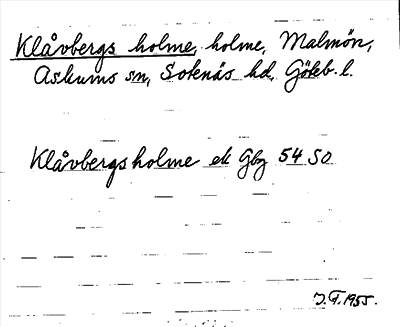 Klåvbergs holme, holme, Malmön,
Askums sn, Sotenäs hd, Göteb. l.
Klåvbergsholme ek Gbg 54 SO
J.F. 1955.